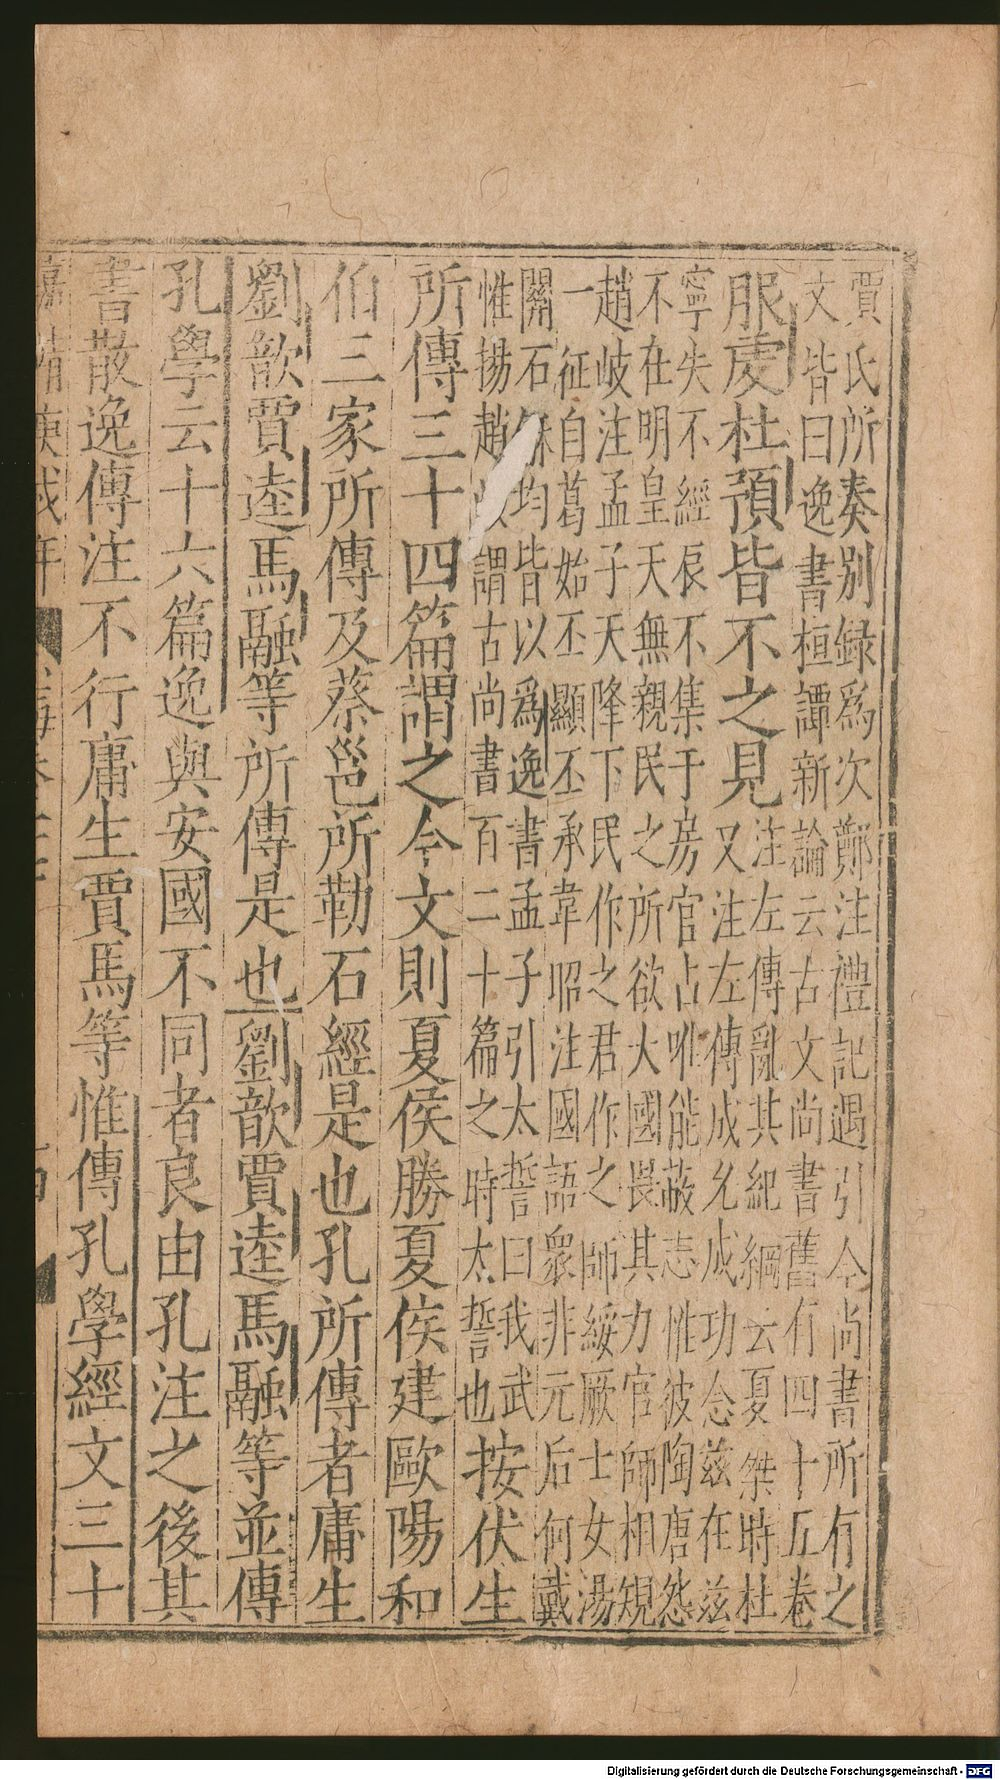 賈氏所奏別録爲次鄭注禮記遇引今尚書所有之
文皆曰逸書桓譚新論云古文尚書舊有四十五卷
服虔杜預皆不之見
注左傳亂其紀綱云夏桀時杜
又注左傳成允成功念兹在兹
寧失不經辰不集于房官占唯能蔽志惟彼陶唐怨
不在明皇天無親民之所欲大國畏其力官師相規
趙岐注孟子天降下民作之君作之師綏厥士女湯
一征自葛始丕顯丕承韋昭注國語衆非元后何戴
關石和均皆以爲逸書孟子引太誓曰我武
惟揚趙岐謂古尚書百二十篇之時太誓也
按伏生
所傳三十四篇謂之今文則夏侯勝夏侯建歐陽和
伯三家所傳及蔡邕所勒石經是也孔所傳者庸生
劉歆賈逵馬融等所傳是也劉歆賈逵馬融等並傳
孔學云十六篇逸與安國不同者良由孔注之後其
書散逸傳注不行庸生賈馬等惟傳孔學經文三十
嘉靖庚戌年
Digitalisierung gefördert durch die Deutsche Forschungsgemeinschaft - DFG